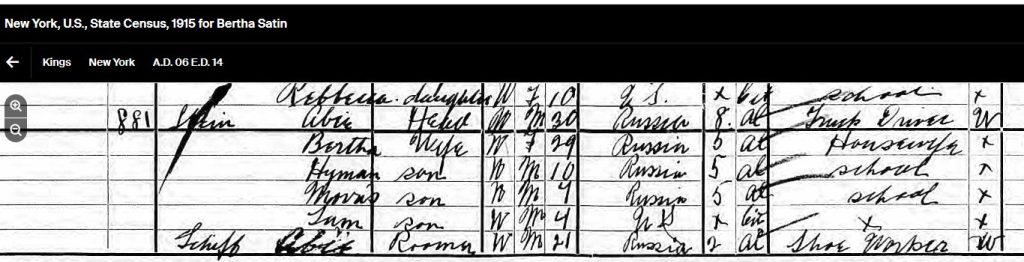 New York, U.S., State Census, 1915 for Bertha Satin
← Kings New York A.D. 06 E.D. 14
Rebbecca daughter W F 10 U.S. x cit school x
881 Abie Head W M 30 Russia 8 al Truck Driver W
Bertha Wife W F 29 Russia 5 al Housewife x
Hyman son W M 10 Russia 5 al school x
Morris son W M 7 Russia 5 al school x
Sam son W M 4 U S x cit x x
Schiff Abie Roomer W M 21 Russia 2 al Shoe Worker W